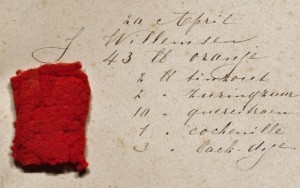 20 April
J Willemsen
43 ℔ oranje
2 ℔ tinzout
2 " zuringzuur
10 " quercitroen
7 " cochenille
3 " lack-dye